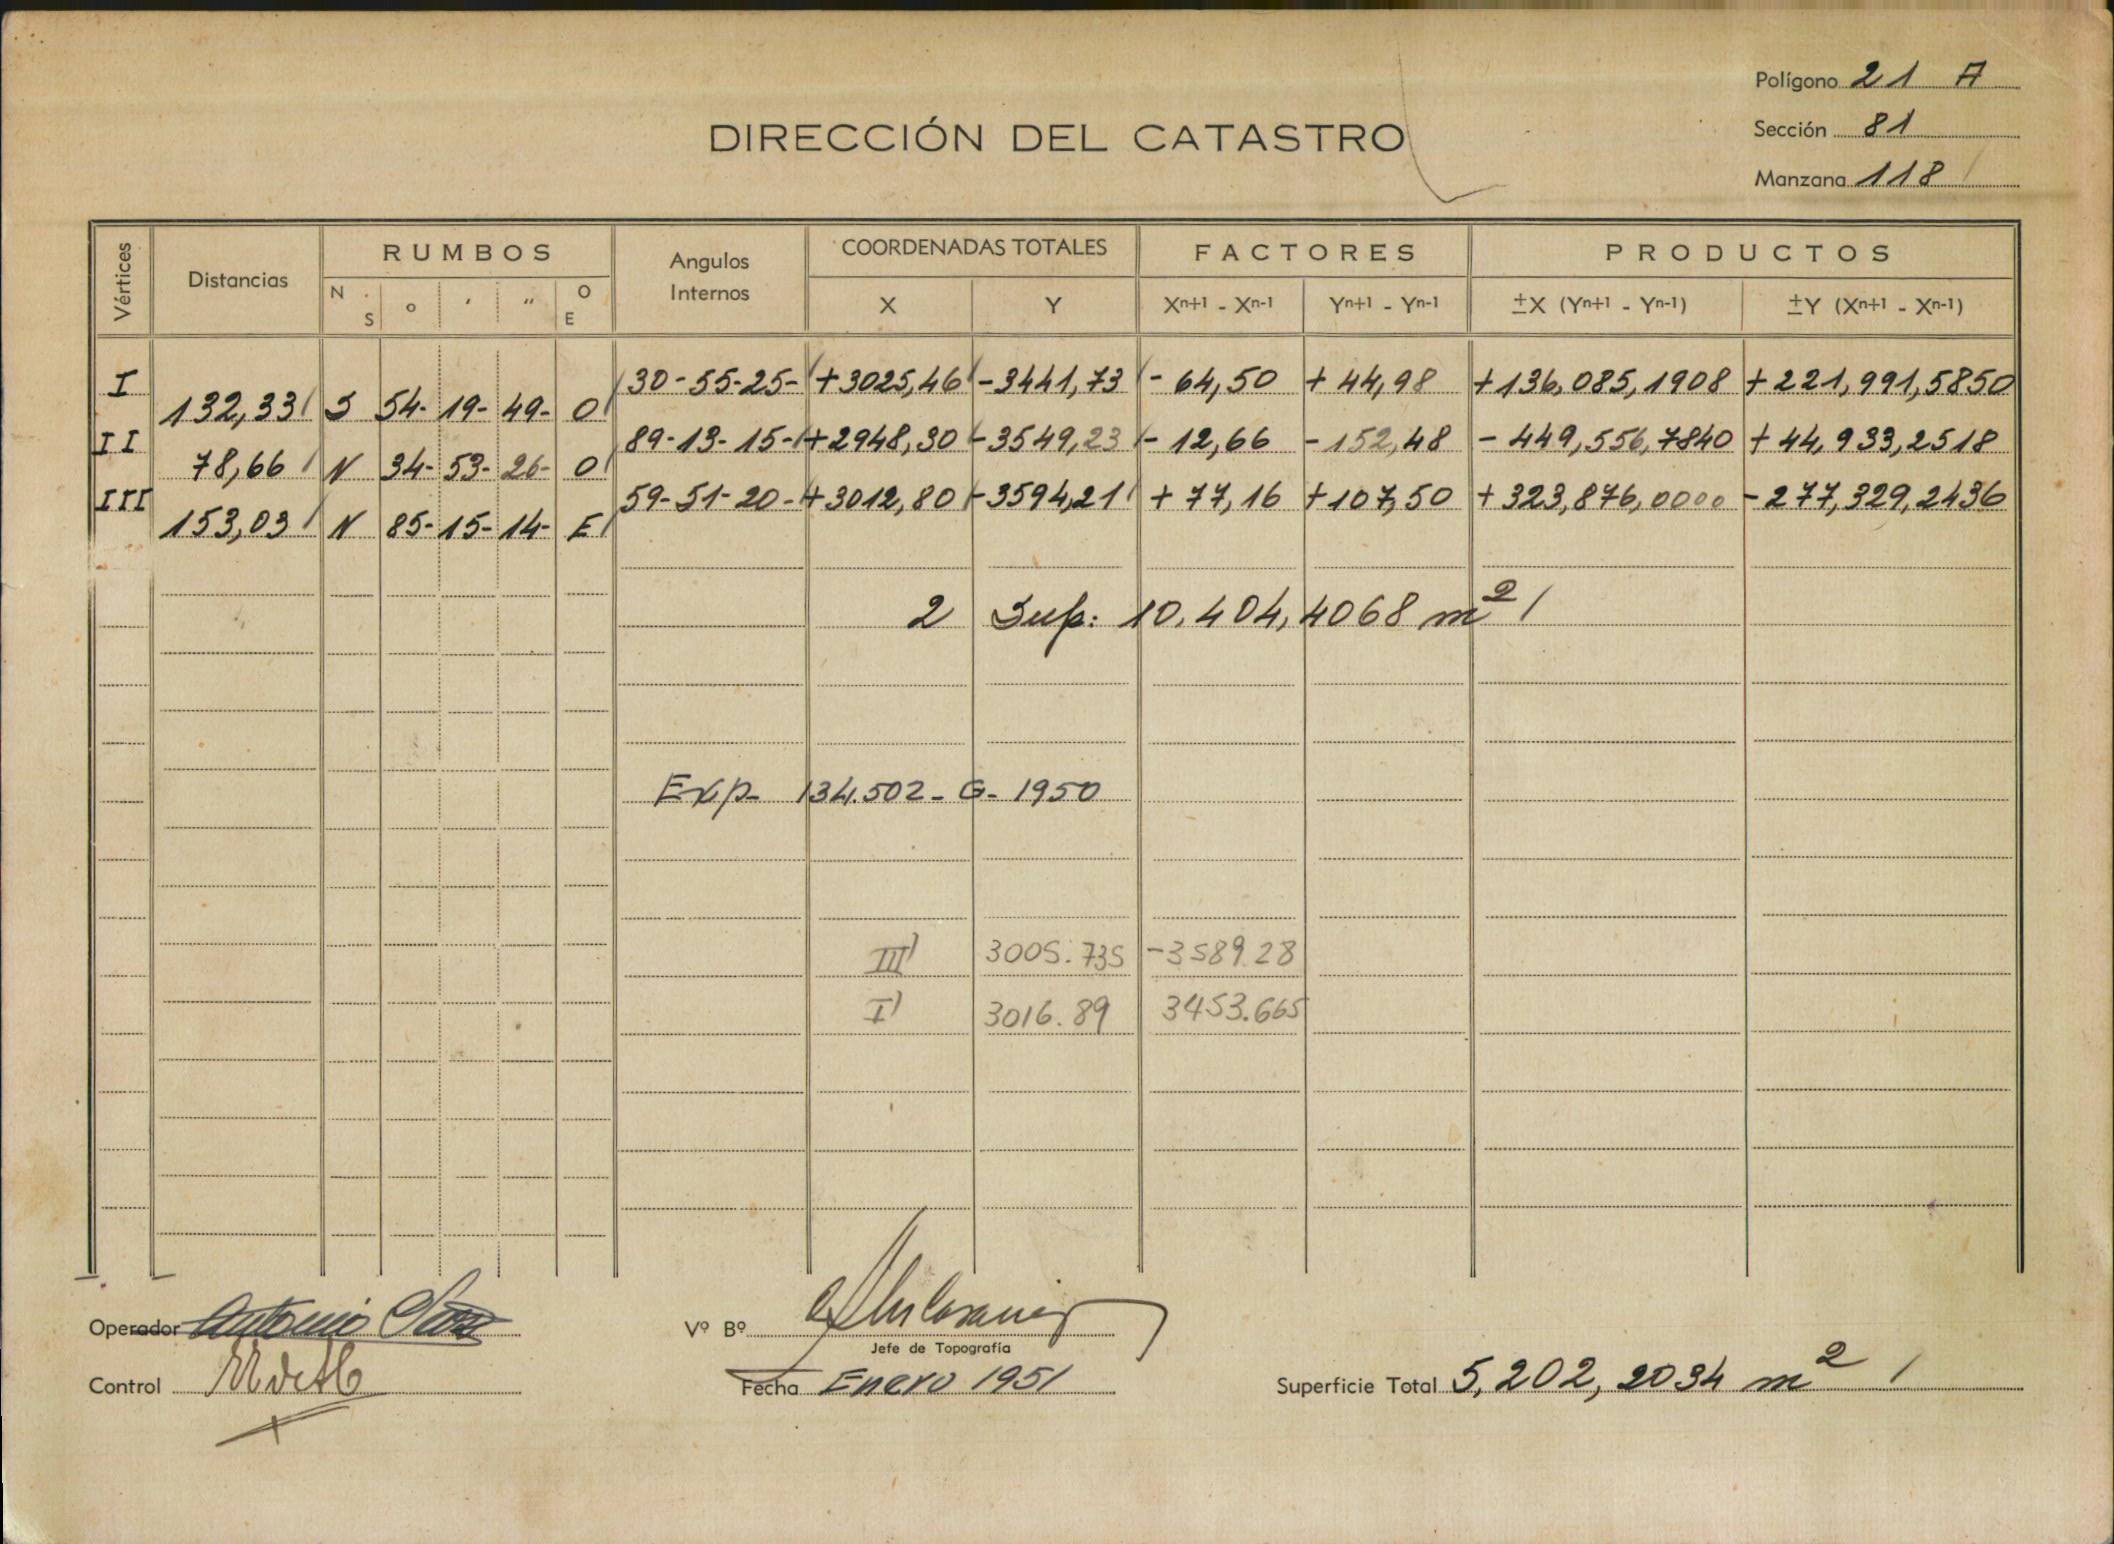 Polígono 21 A
DIRECCIÓN DEL CATASTRO
Sección 81
Manzana 118
Vértices Distancias RUMBOS Angulos Internos COORDENADAS TOTALES FACTORES PRODUCTOS
N S ° ' " O E X Y Xn+1 - Xn-1 Yn+1 - Yn-1 ±X (Yn+1 - Yn-1) ±Y (Xn+1 - Xn-1)
I 30-55-25- +3025,46 -3441,73 -64,50 +44,98 +136,085,1908 +221,991,5850
132,33 S 54- 19- 49- O
II 89-13-15- +2948,30 -3549,23 -12,66 -152,48 -449,556,7840 +44,933,2518
78,66 N 34- 53- 26- O
III 59-51-20- +3012,80 -3594,21 +77,16 +107,50 +323,876,0000 -277,329,2436
153,03 N 85- 15- 14- E
2 Sup: 10.404,4068 m²
Exp- 134.502- G- 1950
III) 3005.735 -3589.28
I) 3016.89 3453.665
Operador Antonio
Vº Bº
Jefe de Topografía
Control
Fecha Enero 1951
Superficie Total 5,202,2034 m²